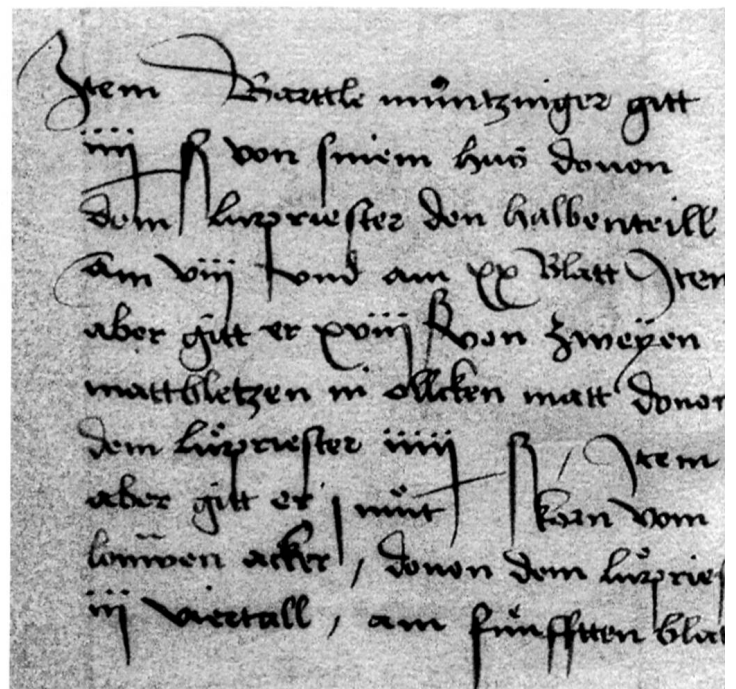 Jtem Barttle müntzinger gitt
iiij ß von sinem hus douon
dem lütpriester den halbenteill
am viij vnd am xx Blatt Jtem
aber gitt er xviij ß von zweyen
mattbletzen in ollcken matt douon
dem lütpriester iiiij ß / Jtem
aber gitt er j mütt korn vom
louwen acker / douon dem lütpries
iij viertall / am fünfften blat